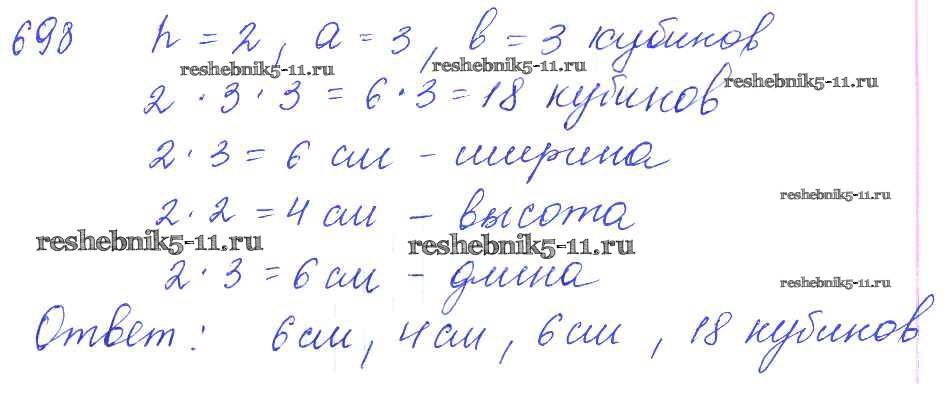 698 h = 2, a = 3, в = 3 кубиков
reshebnik5-11.ru reshebnik5-11.ru
2 · 3 · 3 = 6 · 3 = 18 кубиков
reshebnik5-11.ru
2 · 3 = 6 см - ширина
2 · 2 = 4 см - высота
reshebnik5-11.ru
reshebnik5-11.ru reshebnik5-11.ru
2 · 3 = 6 см - длина
reshebnik5-11.ru
Ответ: 6 см, 4 см, 6 см, 18 кубиков